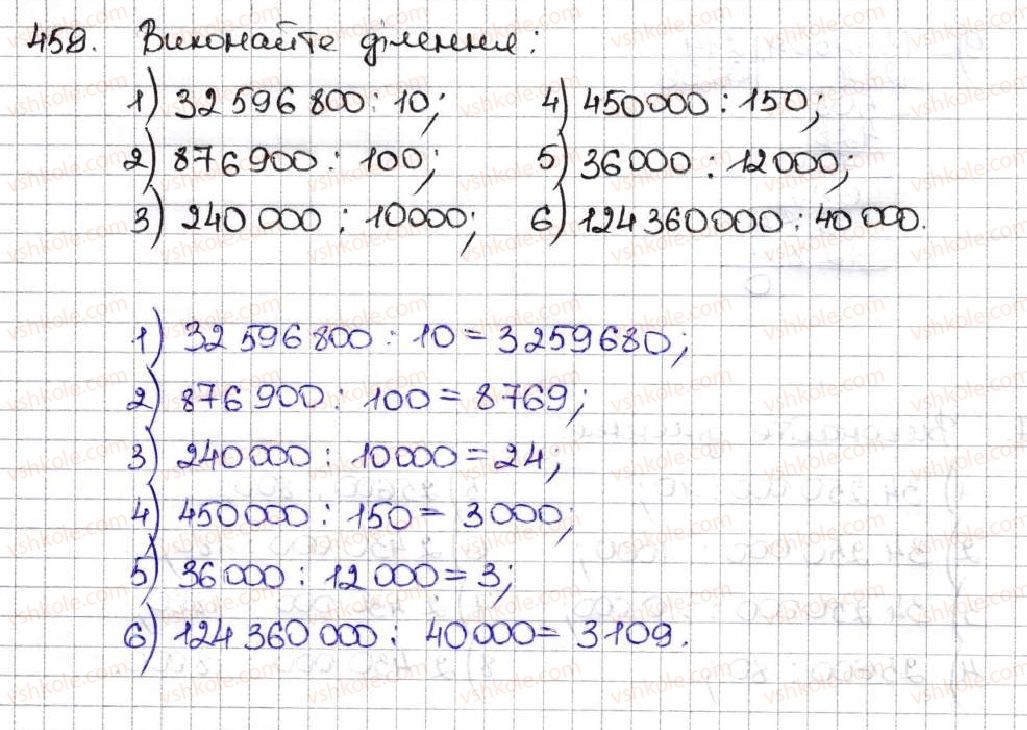 459. Виконайте ділення:
1) 32 596 800 : 10; 4) 450000 : 150;
2) 876 900 : 100; 5) 36 000 : 12 000;
3) 240 000 : 10000; 6) 124 360 000 : 40 000.
1) 32 596 800 : 10 = 3259680;
2) 876 900 : 100 = 8769;
3) 240 000 : 10000 = 24;
4) 450 000 : 150 = 3000;
5) 36 000 : 12 000 = 3;
6) 124 360 000 : 40 000 = 3109.
vshkole.com